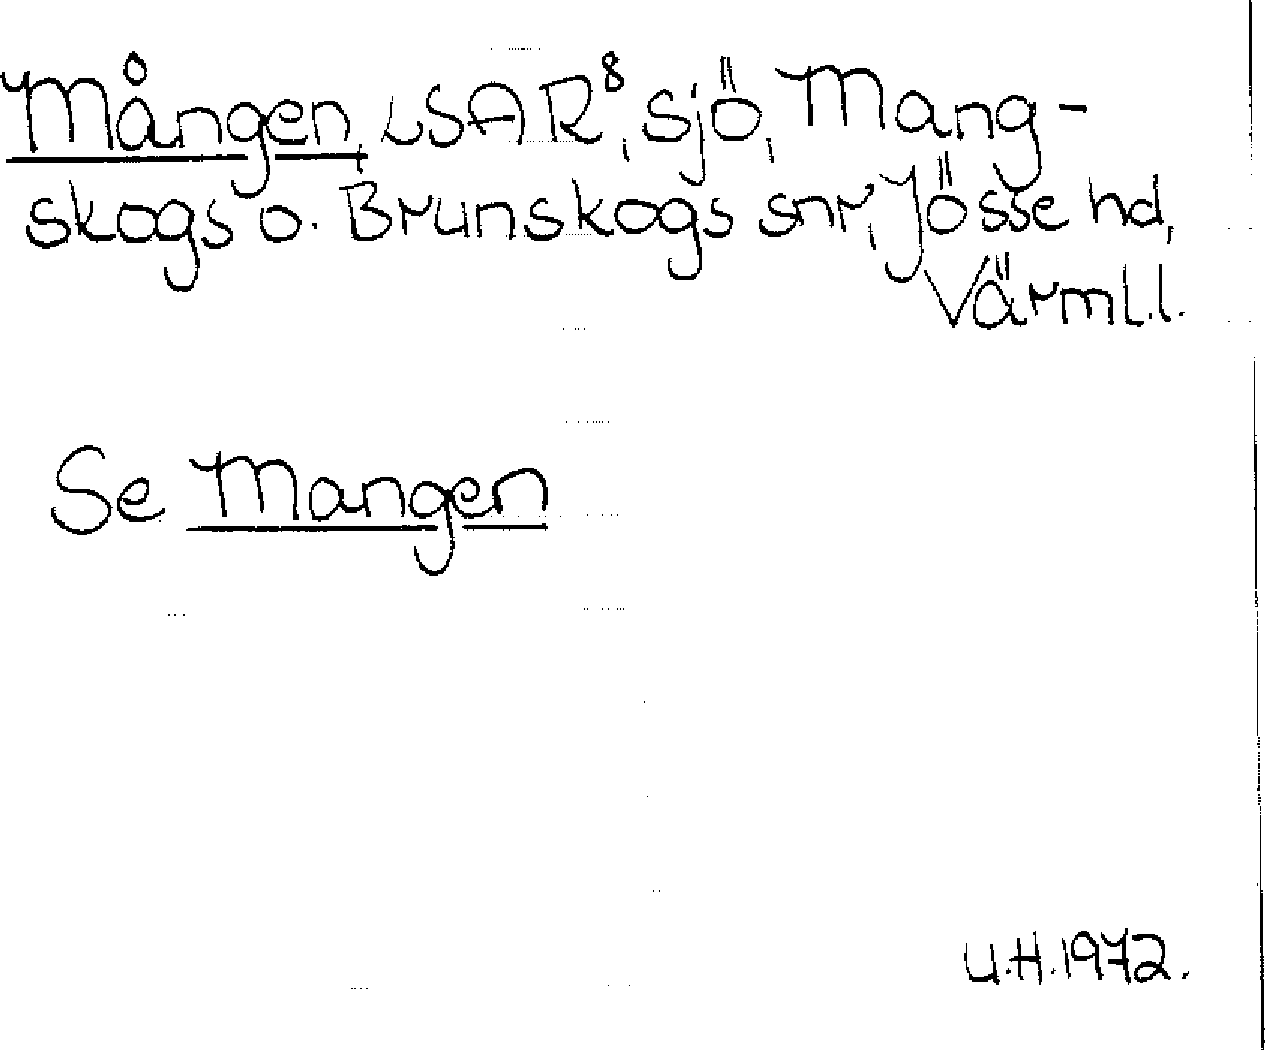 Mången, LSAR⁸, sjö, Mang-
skogs o. Brunskogs snr, Jösse hd,
Värml.l.
Se Mangen
U.H.1972.